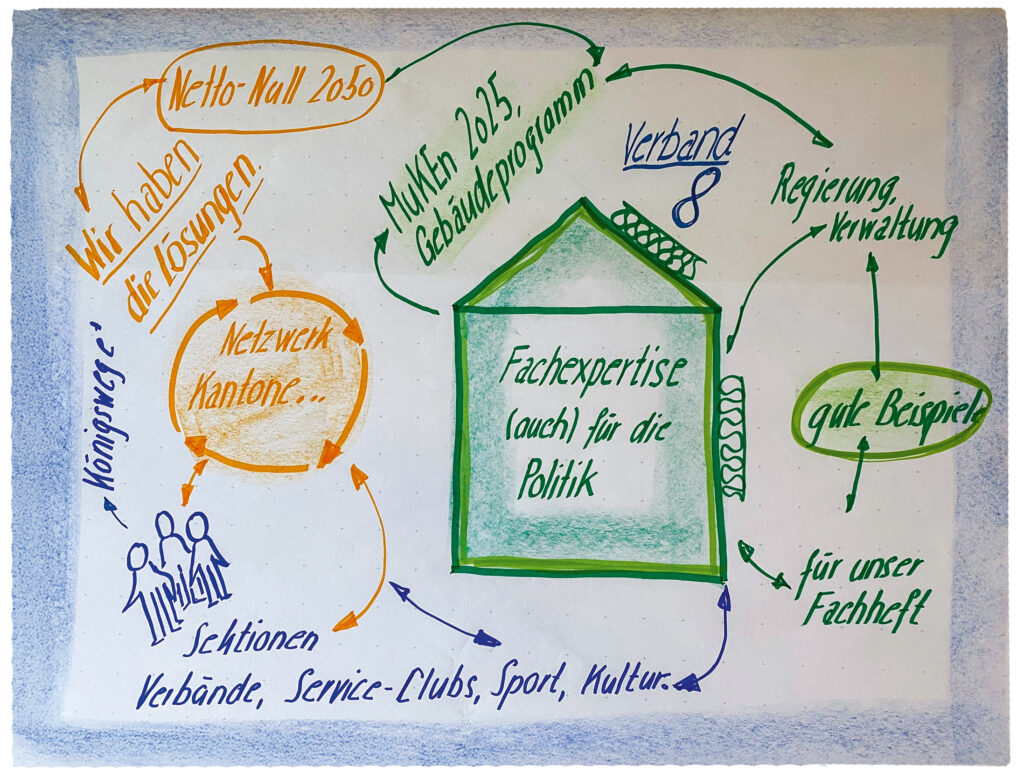 Netto-Null 2050
Wir haben
die Lösungen
MuKEn 2025,
Gebäudeprogramm
Verband
8
Regierung,
Verwaltung
Netzwerk
Kantone...
Königswege+
Fachexpertise
(auch) für die
Politik
gute Beispiele
für unser
Fachheft
Sektionen
Verbände, Service-Clubs, Sport, Kultur.